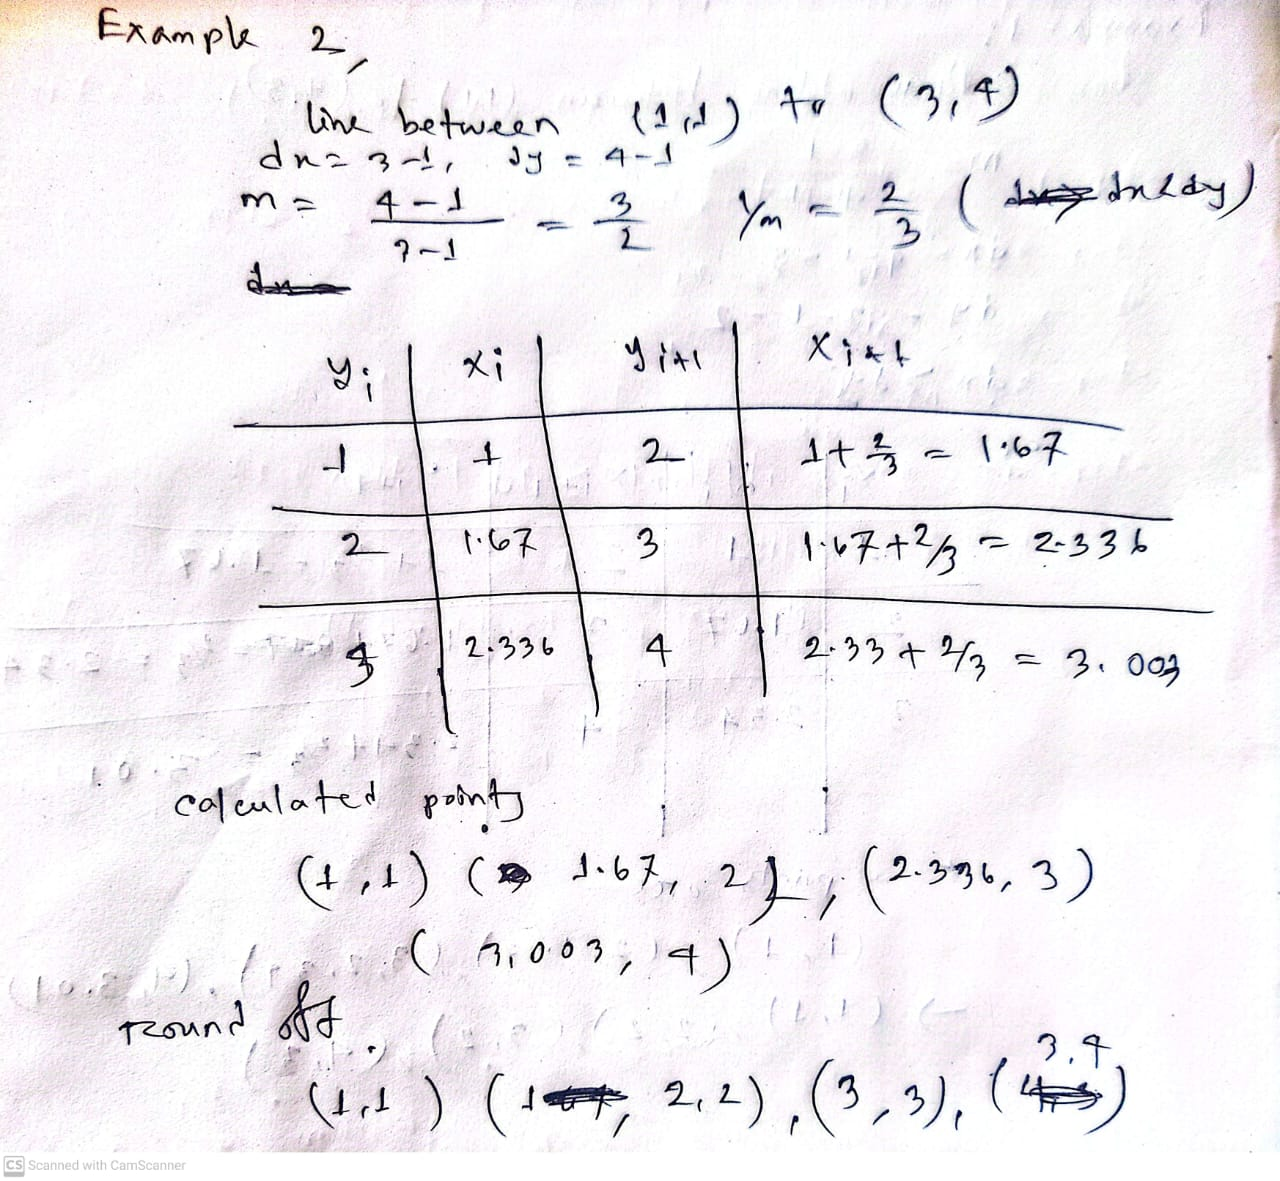 Example 2,
line between (1,1) to (3,4)
dx = 3-1, dy = 4-1
m = 4-1 / 3-1 = 3/2 1/m = 2/3 ( dx < dy)
yi xi yi+1 xi+1
1 1 2 1+2/3 = 1.67
2 1.67 3 1.67+2/3 = 2.336
3 2.336 4 2.33 + 2/3 = 3.003
calculated points
(1,1) ( 1.67, 2), (2.336, 3)
( 3.003, 4)
round off.
3,4
(1,1) ( 2,2), (3,3), ( )
CS Scanned with CamScanner